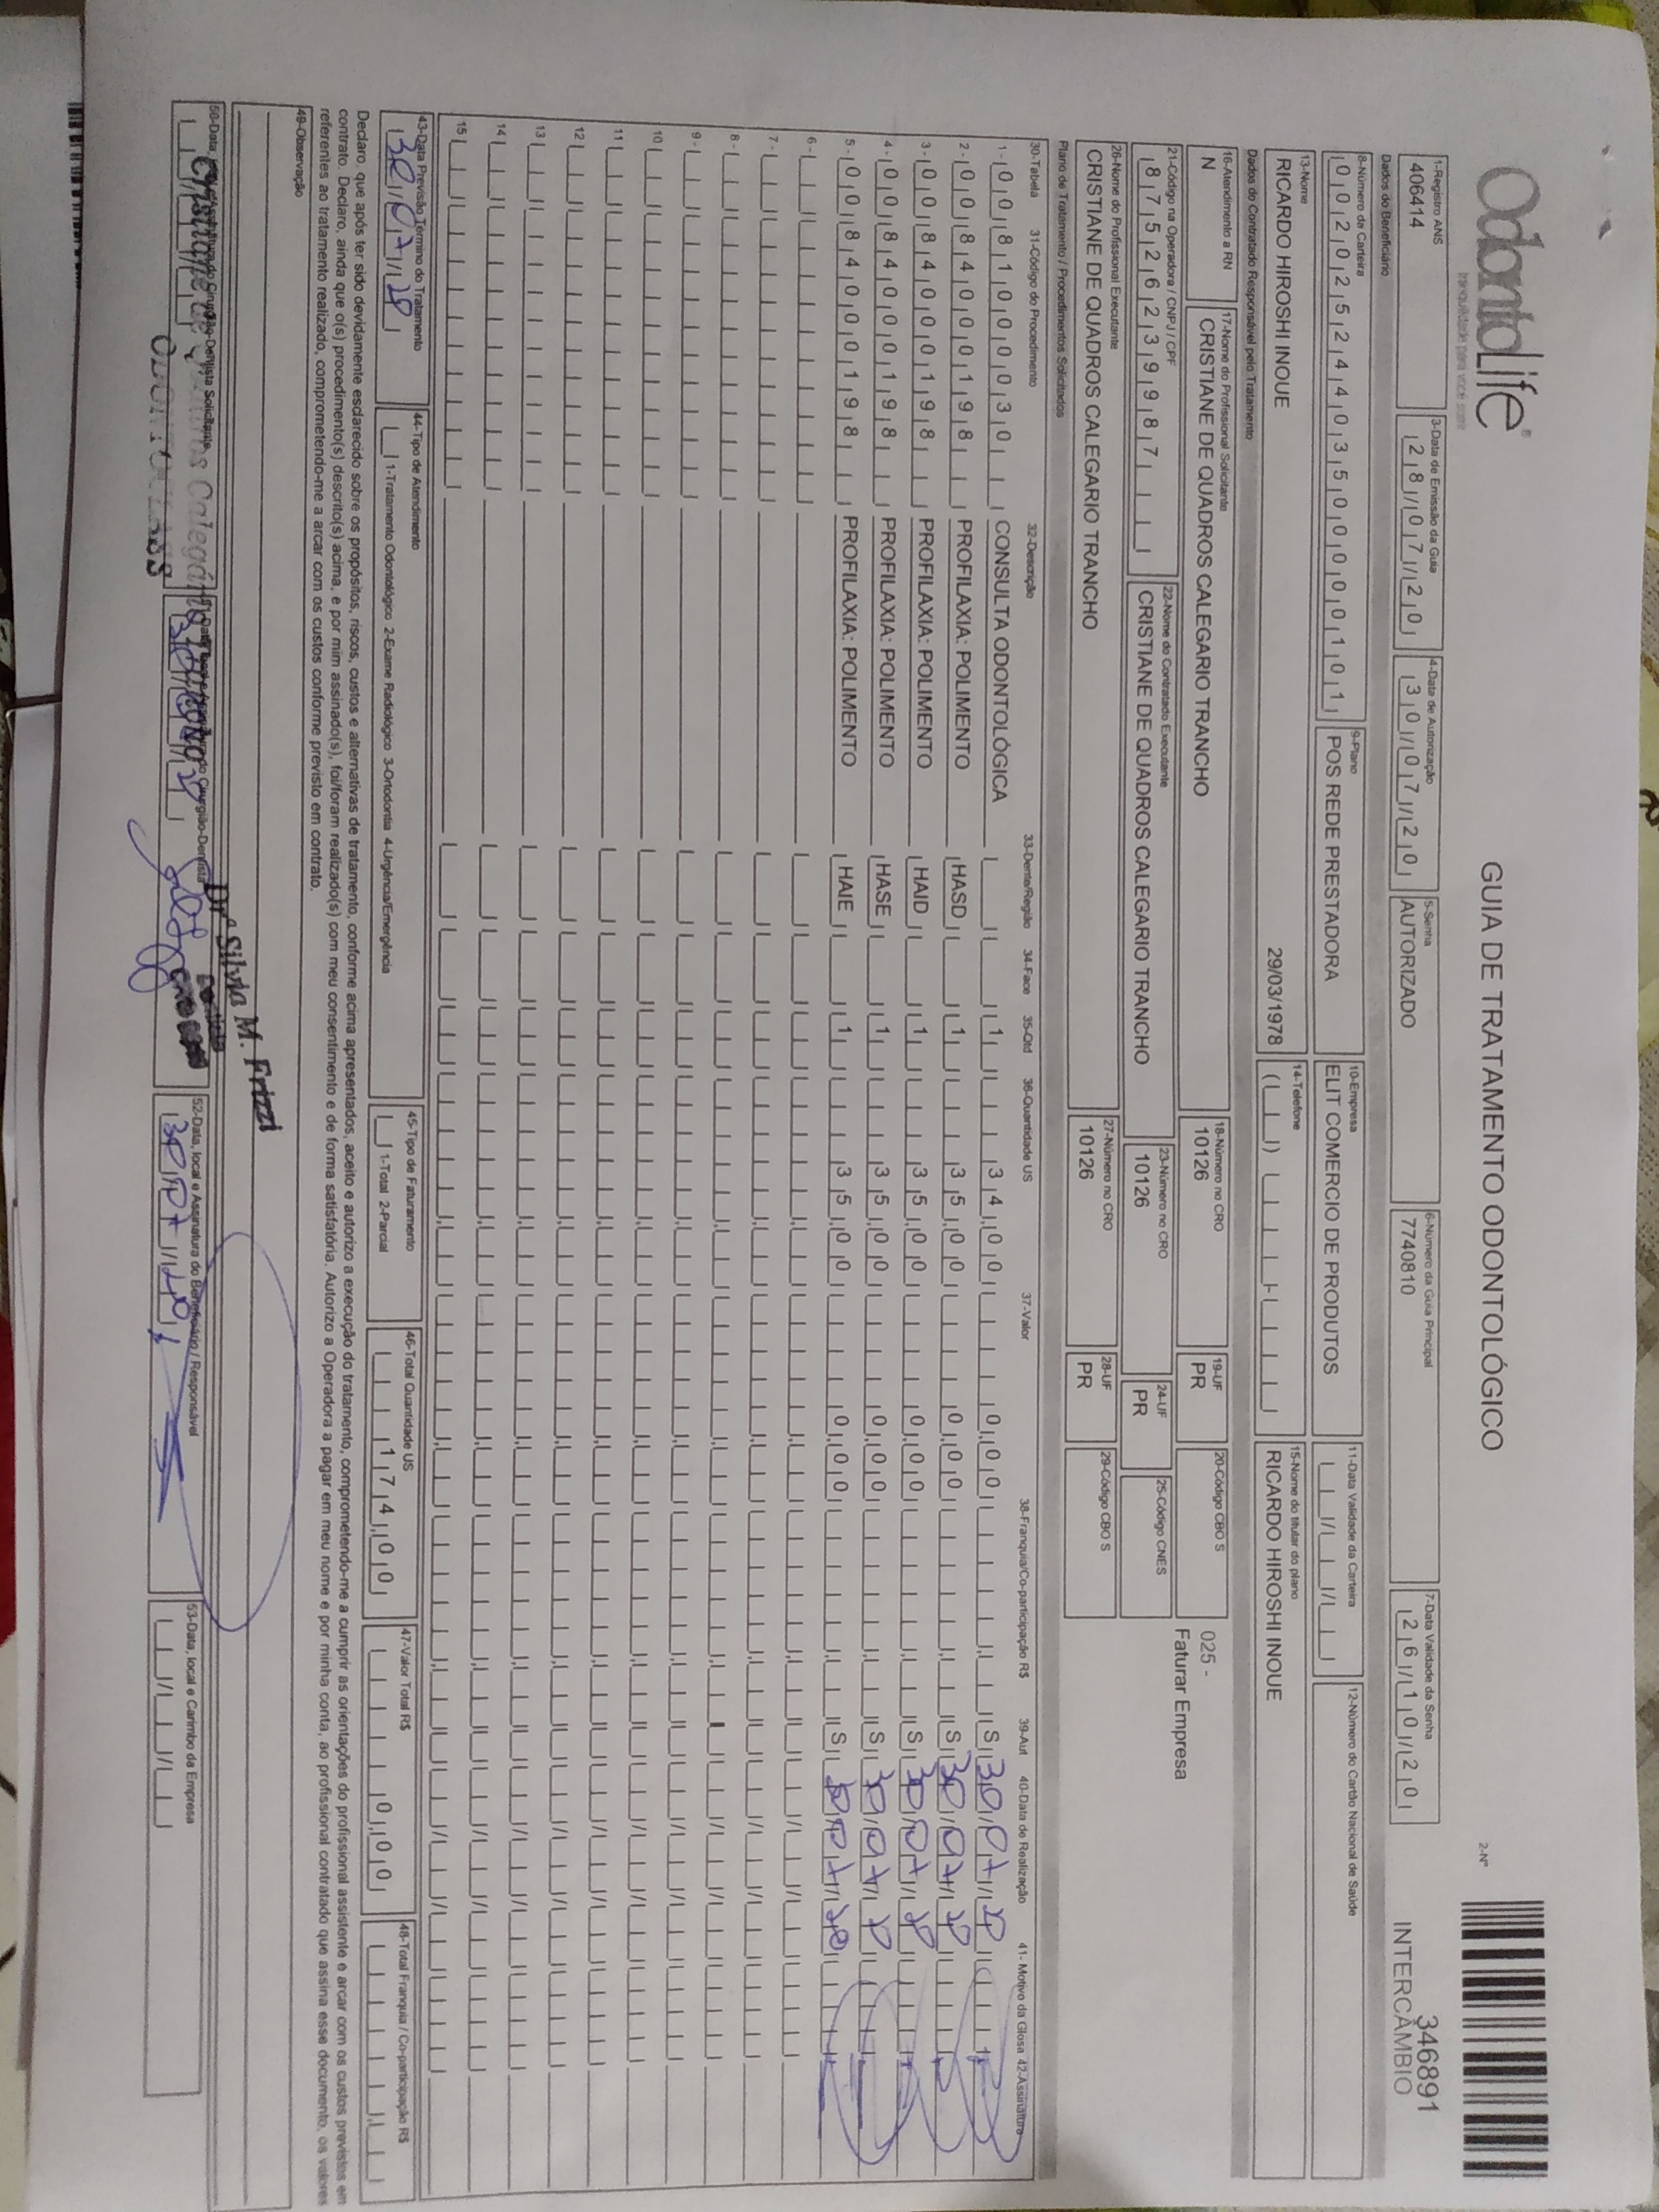 OdontoLife®
tranquilidade para você sorrir
GUIA DE TRATAMENTO ODONTOLÓGICO
2-Nº
346891
INTERCÂMBIO
1-Registro ANS
406414
3-Data de Emissão da Guia
28/07/20
4-Data de Autorização
30/07/20
5-Senha
AUTORIZADO
6-Número da Guia Principal
7740810
7-Data Validade da Senha
26/10/20
Dados do Beneficiário
8-Número da Carteira
00202524403500000101
9-Plano
POS REDE PRESTADORA
10-Empresa
ELIT COMERCIO DE PRODUTOS
11-Data Validade da Carteira
12-Número do Cartão Nacional de Saúde
13-Nome
RICARDO HIROSHI INOUE 29/03/1978
14-Telefone
15-Nome do titular do plano
RICARDO HIROSHI INOUE
Dados do Contratado Responsável pelo Tratamento
16-Atendimento a RN
N
17-Nome do Profissional Solicitante
CRISTIANE DE QUADROS CALEGARIO TRANCHO
18-Número no CRO
10126
19-UF
PR
20-Código CBO S
025 -
Faturar Empresa
21-Código na Operadora / CNPJ / CPF
87526239987
22-Nome do Contratado Executante
CRISTIANE DE QUADROS CALEGARIO TRANCHO
23-Número no CRO
10126
24-UF
PR
25-Código CNES
26-Nome do Profissional Executante
CRISTIANE DE QUADROS CALEGARIO TRANCHO
27-Número no CRO
10126
28-UF
PR
29-Código CBO S
Plano de Tratamento / Procedimentos Solicitados
30-Tabela 31-Código do Procedimento 32-Descrição 33-Dente/Região 34-Face 35-Qtd 36-Quantidade US 37-Valor 38-Franquia/Co-participação R$ 39-Aut 40-Data de Realização 41- Motivo da Glosa 42-Assinatura
1 - 00 81000030 CONSULTA ODONTOLÓGICA 1 34,00 0,00 S 30/07/20
2 - 00 84000198 PROFILAXIA: POLIMENTO HASD 1 35,00 0,00 S 30/07/20
3 - 00 84000198 PROFILAXIA: POLIMENTO HAID 1 35,00 0,00 S 30/07/20
4 - 00 84000198 PROFILAXIA: POLIMENTO HASE 1 35,00 0,00 S 30/07/20
5 - 00 84000198 PROFILAXIA: POLIMENTO HAIE 1 35,00 0,00 S 30/07/20
6 -
7 -
8 -
9 -
10
11
12
13
14
15
43-Data Previsão Término do Tratamento
30/07/20
44-Tipo de Atendimento
1-Tratamento Odontológico 2-Exame Radiológico 3-Ortodontia 4-Urgência/Emergência
45-Tipo de Faturamento
1-Total 2-Parcial
46-Total Quantidade US
174,00
47-Valor Total R$
0,00
48-Total Franquia / Co-participação R$
Declaro, que após ter sido devidamente esclarecido sobre os propósitos, riscos, custos e alternativas de tratamento, conforme acima apresentados, aceito e autorizo a execução do tratamento, comprometendo-me a cumprir as orientações do profissional assistente e arcar com os custos previstos em
contrato. Declaro, ainda que o(s) procedimento(s) descrito(s) acima, e por mim assinado(s), foi/foram realizado(s) com meu consentimento e de forma satisfatória. Autorizo a Operadora a pagar em meu nome e por minha conta, ao profissional contratado que assina esse documento, os valores
referentes ao tratamento realizado, comprometendo-me a arcar com os custos conforme previsto em contrato.
49-Observação
Drª Silvia M. Frizzi
Dentista
50-Data, local e Assinatura do Cirurgião-Dentista Solicitante
Cristiane de Quadros Calegário Trancho
51-Data, local e Assinatura do Cirurgião-Dentista
30/07/20
52-Data, local e Assinatura do Beneficiário / Responsável
30/07/20
53-Data, local e Carimbo da Empresa